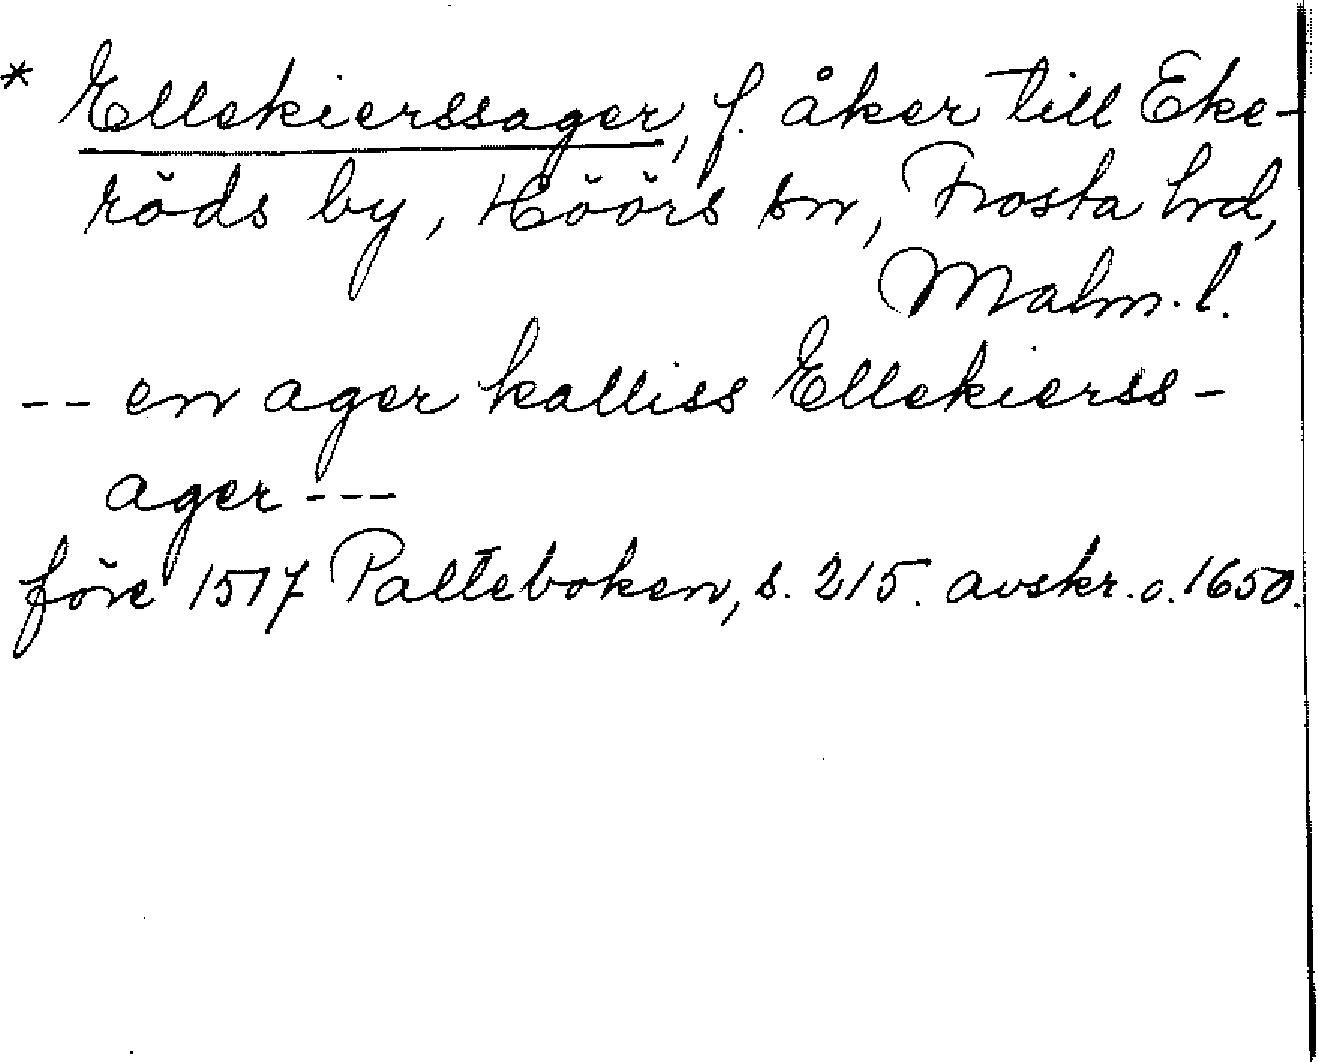 * Ellekierssager, f. åker till Eke-
röds by, Höörs sn, Frosta hd,
Malm. l.
-- en ager kalliss Ellekierss-
ager ---
före 1517 Palteboken, s. 215. avskr. c. 1650.